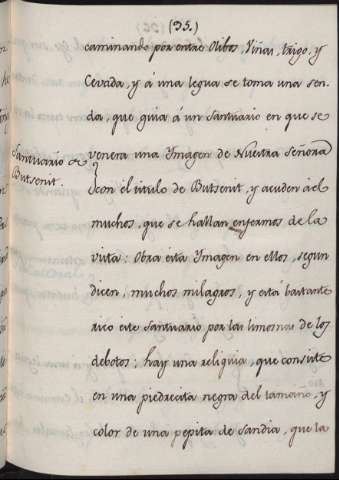 (35.)
caminando por entre Olibos, Viñas, trigo, y
Cevada, y á una legua se toma una sen-
da, que guia á un Santuario en que se
Santuario de
Butsenit.
venera una Ymagen de Nuestra Señora
con el titulo de Butsenit, y acuden áel
muchos, que se hallan enfermos de la
vista: Obra esta Ymagen en ellos, segun
dicen, muchos milagros, y está bastante
rico este Santuario por las limosnas de los
debotos: hay una reliquia, que consiste
en una piedrecita negra del tamaño, y
color de una pepita de sandia, que la